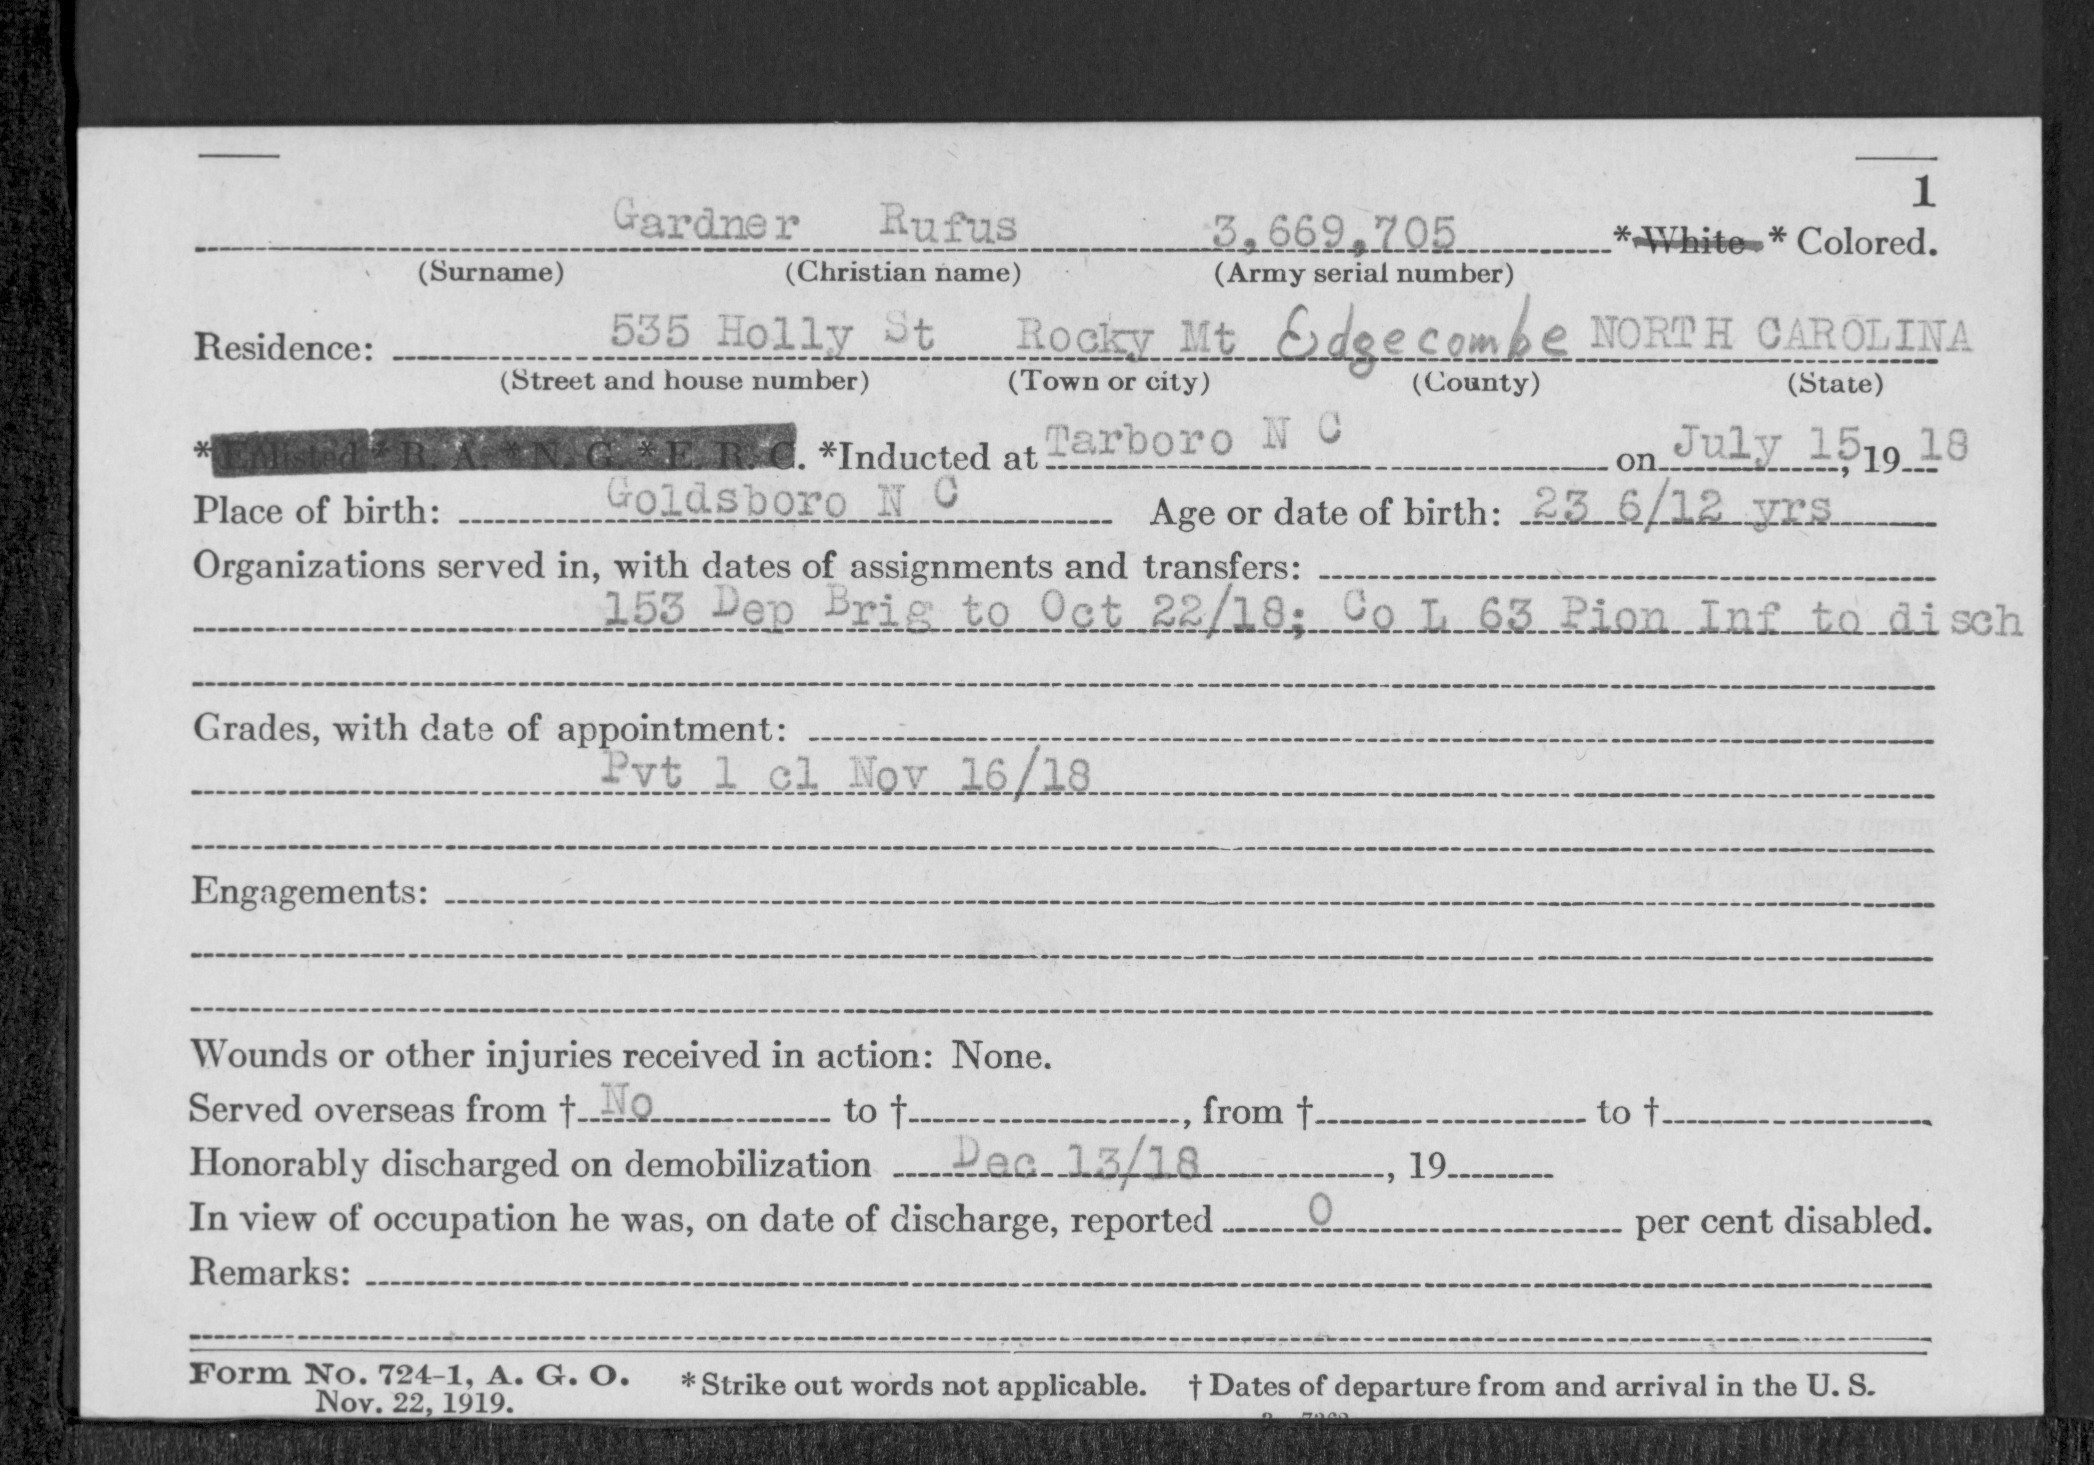 1
Gardner Rufus 3,669,705 *White *Colored.
(Surname) (Christian name) (Army serial number)
Residence: 535 Holly St Rocky Mt Edgecombe NORTH CAROLINA
(Street and house number) (Town or city) (County) (State)
*Enlisted *R. A. *N. G. *E. R. C. *Inducted at Tarboro N C on July 15, 19 18
Place of birth: Goldsboro N C Age or date of birth: 23 6/12 yrs
Organizations served in, with dates of assignments and transfers:
153 Dep Brig to Oct 22/18; Co L 63 Pion Inf to disch
Grades, with date of appointment:
Pvt 1 cl Nov 16/18
Engagements:
Wounds or other injuries received in action: None.
Served overseas from † No to †, from † to †
Honorably discharged on demobilization Dec 13/18, 19
In view of occupation he was, on date of discharge, reported 0 per cent disabled.
Remarks:
Form No. 724-1, A. G. O. *Strike out words not applicable. † Dates of departure from and arrival in the U. S.
Nov. 22, 1919.